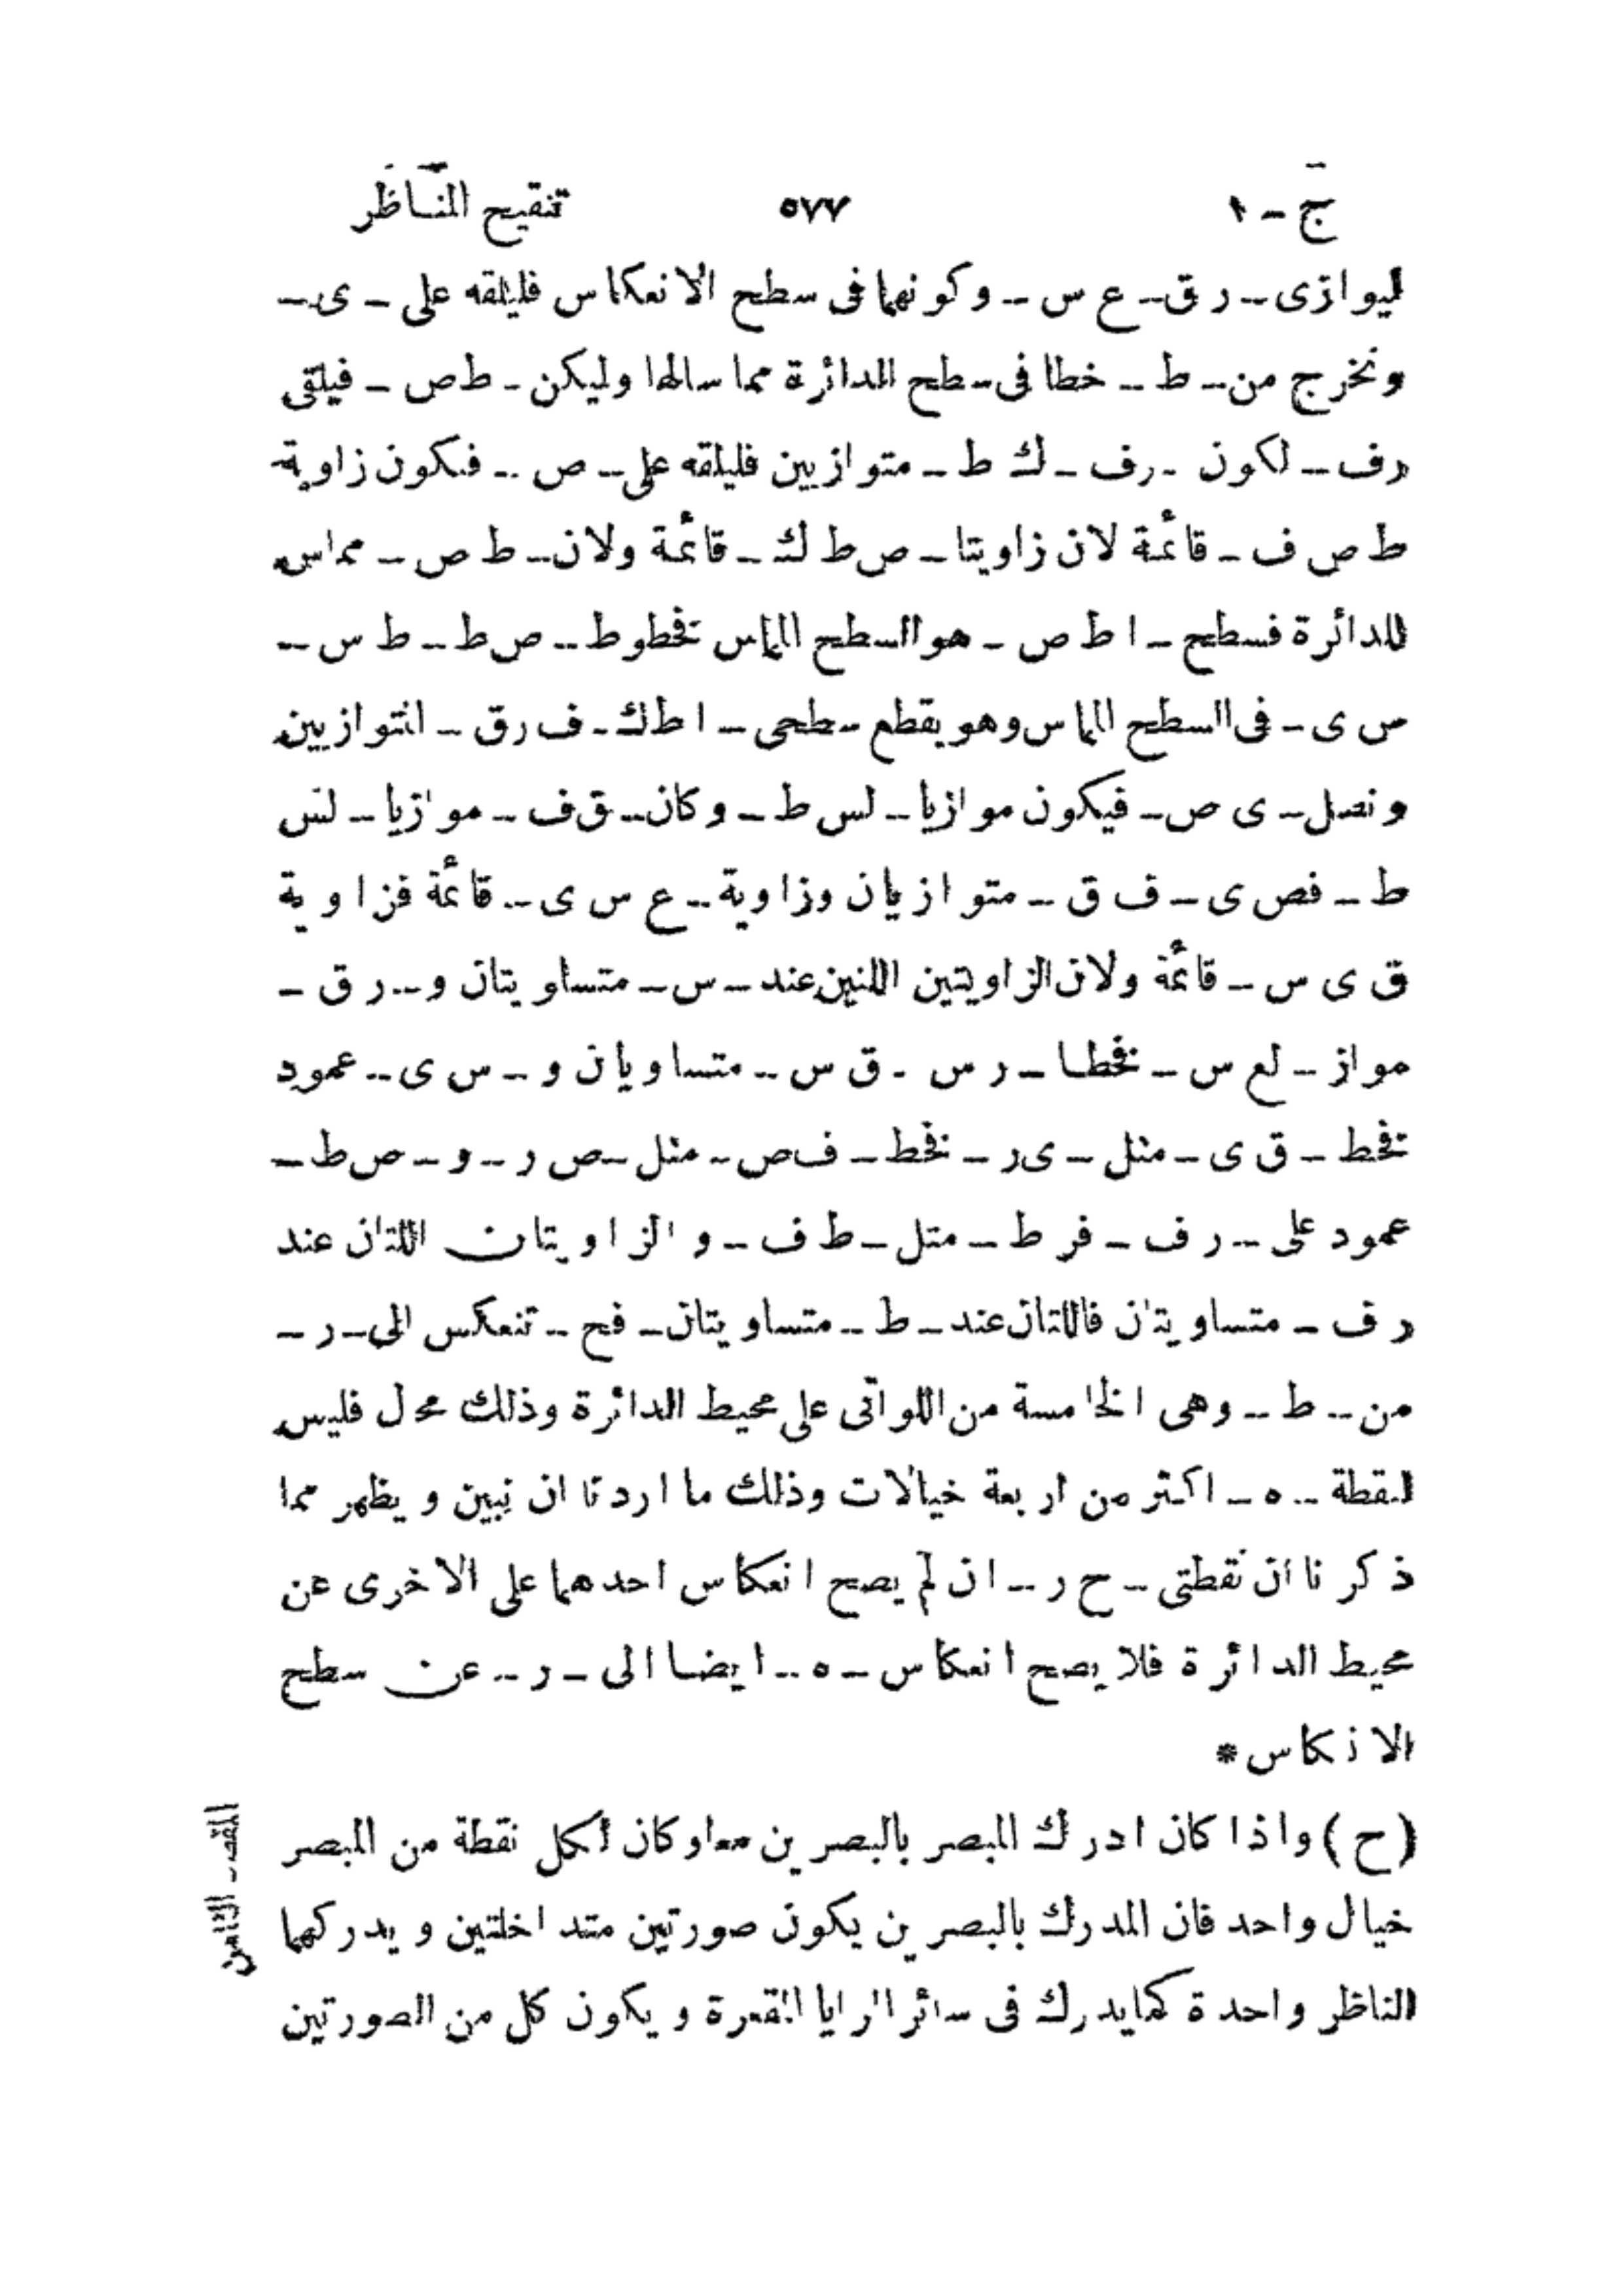 ج - ١ ٥٧٧ تنقيح المناظر
ليوازى - ر ق - ع س - وكونهما فى سطح الانعكاس فليلقه على - ى -
ونخرج من - ط - خطا فى سطح الدائرة مماسا لها وليكن - ط ص - فيلقى
رف - لكون - رف - ك ط - متوازيين فليلقه على - ص - فكون زاوية
ط ص ف - قائمة لان زاويتا - ص ط ك - قائمة ولان - ط ص - مماس
للدائرة فسطح - ا ط ص - هو السطح المماس فخطوط - ص ط - ط س -
س ى - فى السطح المماس وهو يقطع سطحى - ا ط ك - ف ر ق - المتوازيين
ونصل - ى ص - فيكون موازيا - لس ط - وكان - ق ف - موازيا - لس
ط - فص ى - ف ق - متوازيان وزاوية - ع س ى - قائمة فزاوية
ق ى س - قائمة ولان الزاويتين اللتين عند - س - متساويتان و - ر ق -
مواز - لع س - فخطا - ر س - ق س - متساويان و - س ى - عمود
فخط - ق ى - مثل - ى ر - فخط - ف ص - مثل - ص ر - و - ص ط -
عمود على - ر ف - فر ط - مثل - ط ف - و الزاويتان اللتان عند
ر ف - متساويتان فاللتان عند - ط - متساويتان - فح - تنعكس الى - ر -
من - ط - وهى الخامسة من اللواتى على محيط الدائرة وذلك محال فليس
لنقطة - ه - اكثر من اربعة خيالات وذلك ما اردنا ان نبين ويظهر مما
ذكرنا ان نقطتى - ح ر - ان لم يصح انعكاس احدهما على الاخرى عن
محيط الدائرة فلا يصح انعكاس - ه - ايضا الى - ر - عن سطح
الانعكاس *
(ح) واذا كان ادرك المبصر بالبصرين معا وكان لكل نقطة من المبصر
خيال واحد فان المدرك بالبصرين يكون صورتين متداخلتين ويدركهما
الناظر واحدة كما يدرك فى سائر المرايا المقعرة ويكون كل من الصورتين
المقصد الثامن